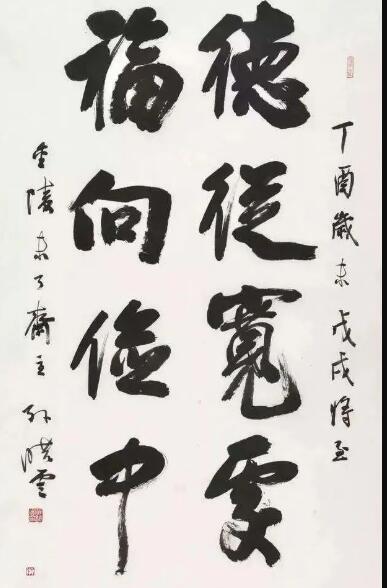 丁酉歲末戊戌将至
德從寬處
福向儉中
金陵未了齋主孫曉雲